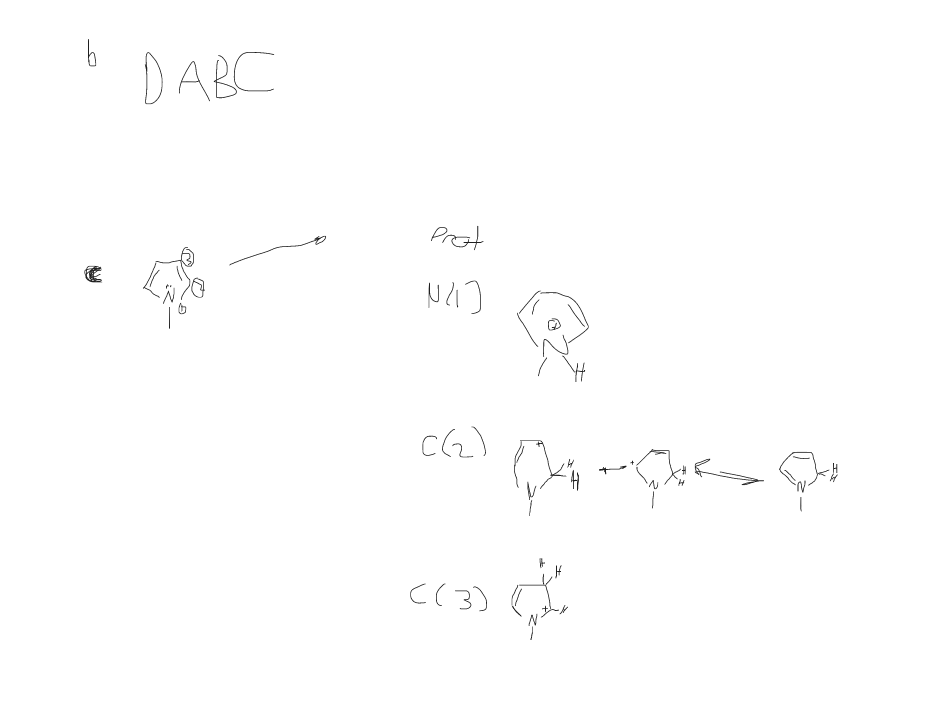 b
DABC
c
3
N
Prot
N(1)
N
H
C(2)
+
H
H
N
+
H
H
N
H
H
N
C(3)
H
H
+
H
N